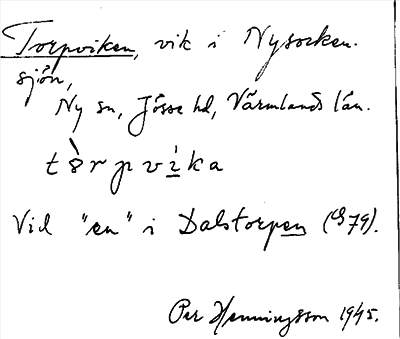 Torpviken, vik i Nysocken-
sjön,
Ny sn, Jösse hd, Värmlands län.
tòrpvíka
Vid "en" i Dalstorpen (G79).
Per Henningsson 1945.